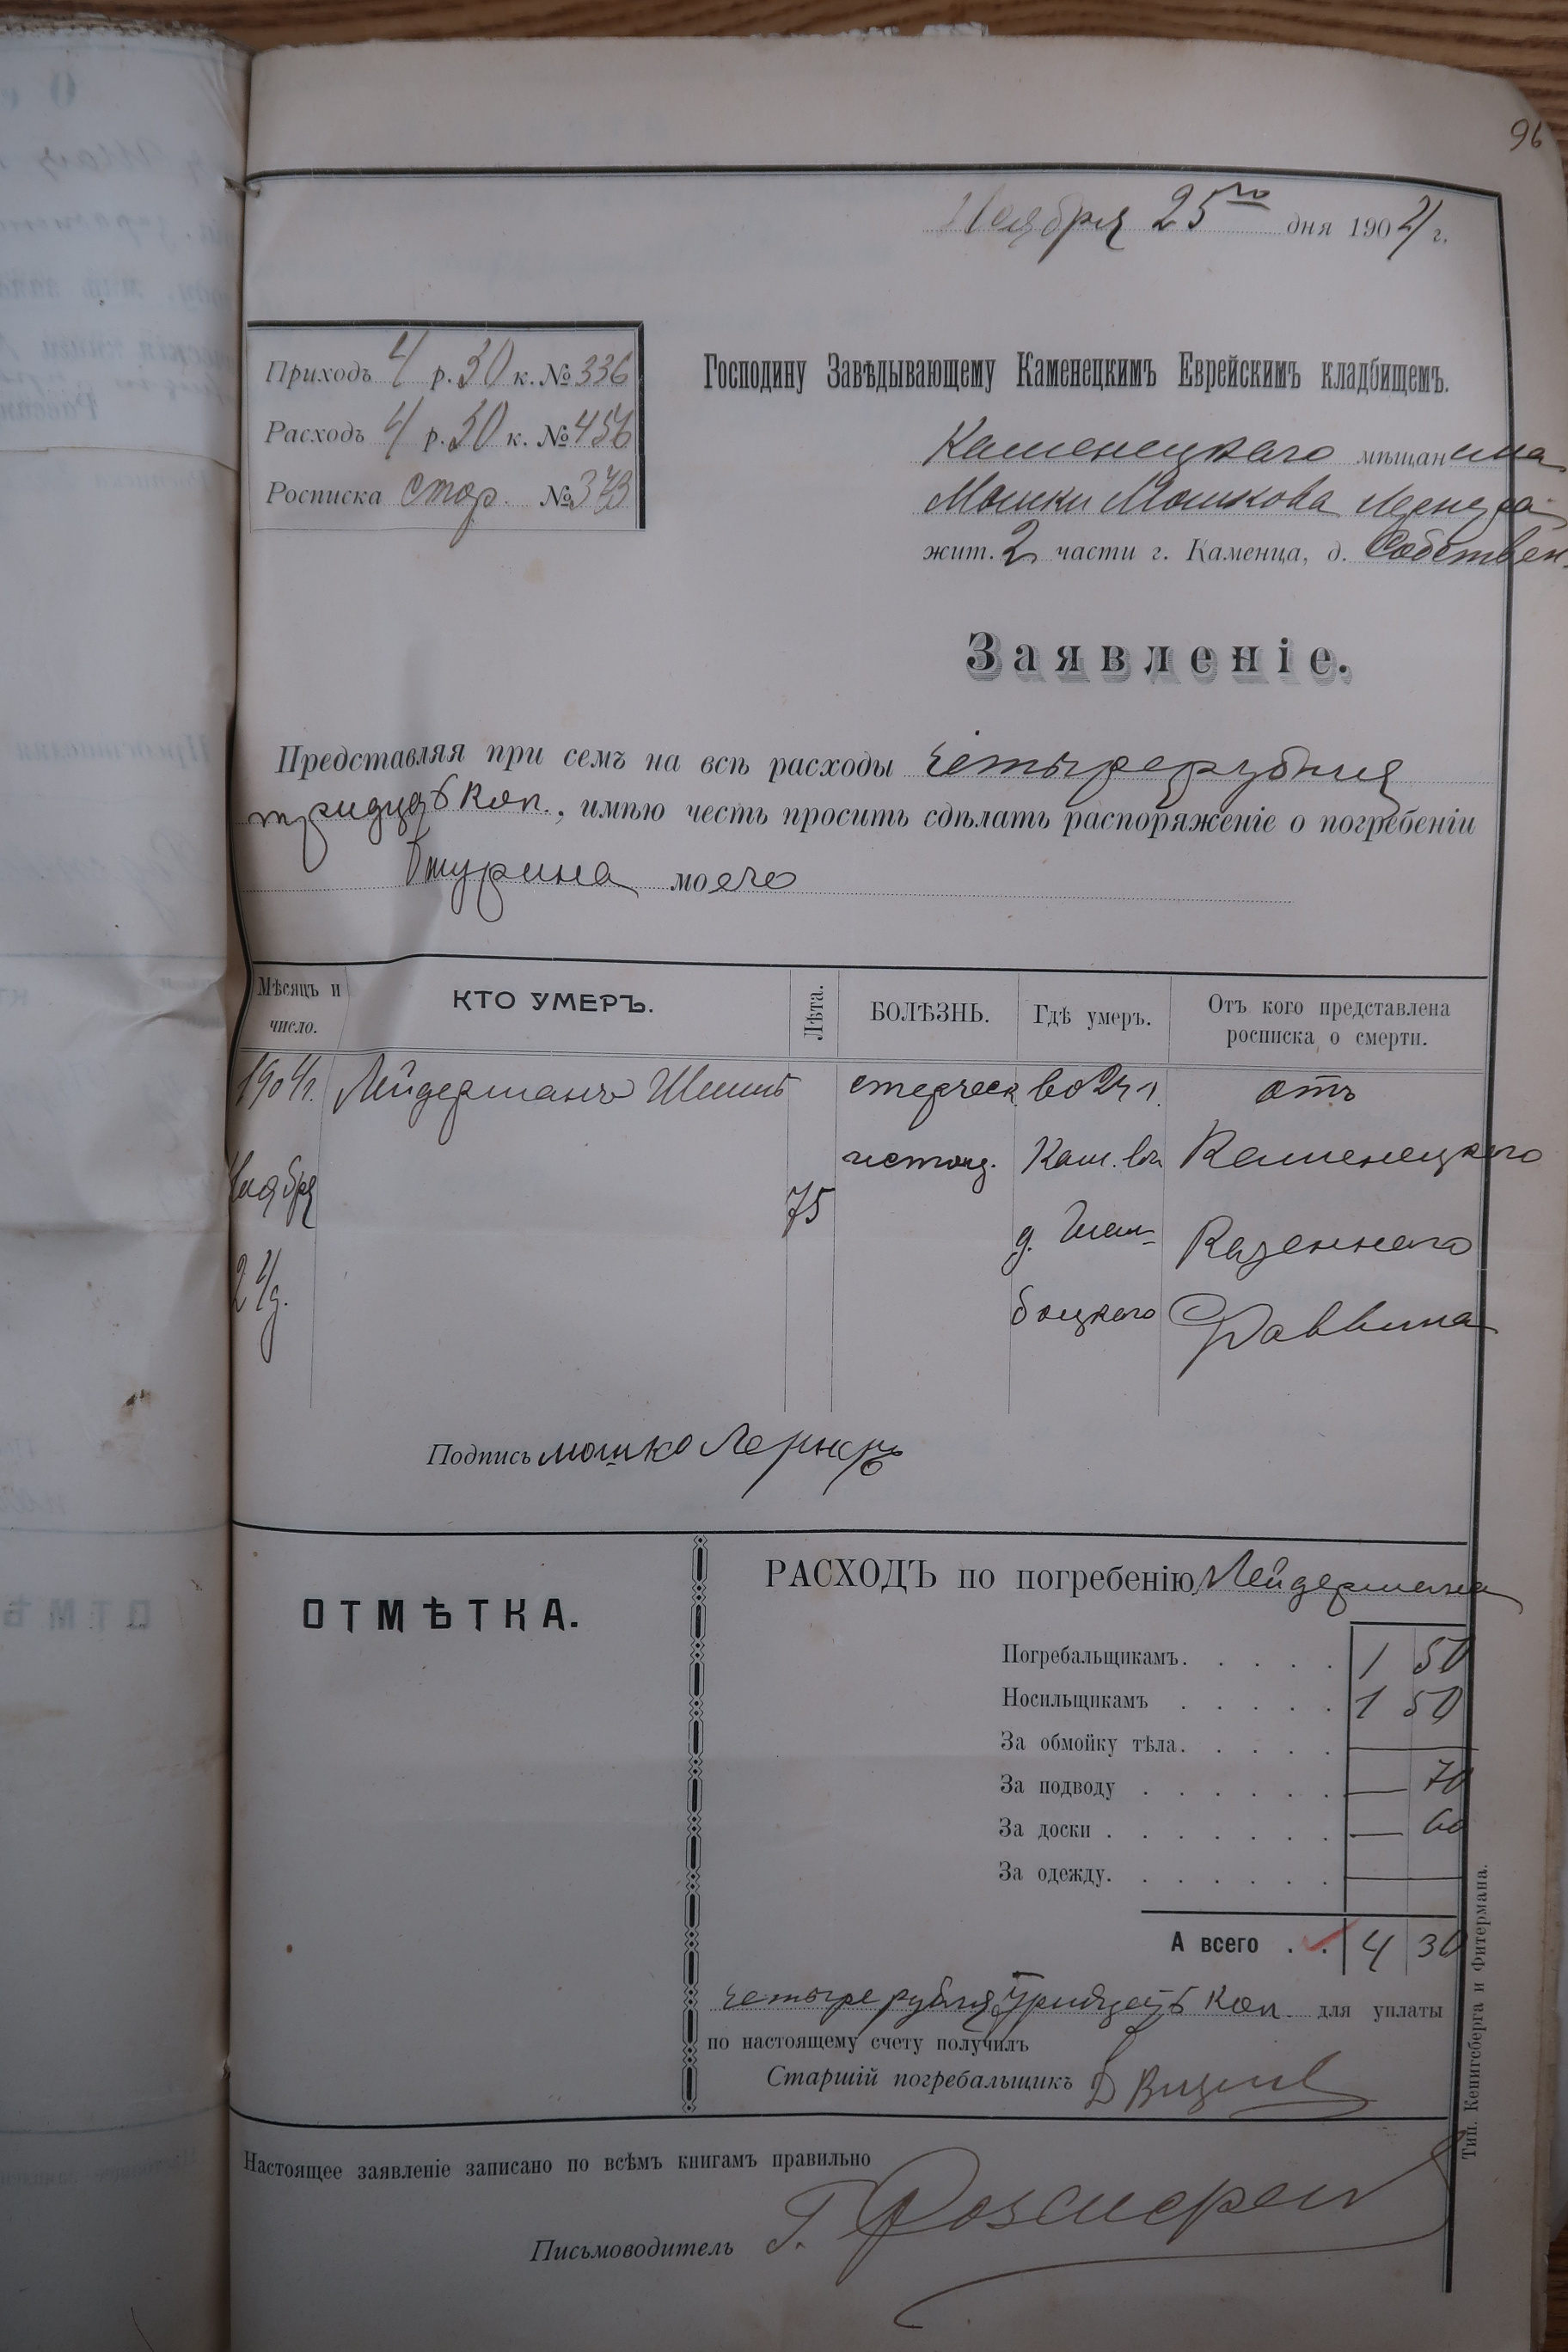 96
Ноября 25го дня 1904 г.
Приходъ 4 р. 30 к. № 336
Расходъ 4 р. 30 к. № 456
Росписка стор. № 373
Господину Завѣдывающему Каменецкимъ Еврейскимъ кладбищемъ.
Каменецкаго мѣщанина
Мошки Мошкова Лернера
жит. 2 части г. Каменца, д. Собствен.
Заявленіе.
Представляя при семъ на всѣ расходы четыре рубля
тридцать коп., имѣю честь просить сдѣлать распоряженіе о погребеніи
моего
Мѣсяцъ и число.
КТО УМЕРЪ.
Лѣта.
БОЛѢЗНЬ.
Гдѣ умеръ.
Отъ кого представлена росписка о смерти.
1904 г. Лейдерманъ во 2 ч. отъ
Кам. въ Каменецкаго
Ноября 75 д. Казеннаго
24 д. Раввина
Подпись мошко Лернеръ
ОТМѢТКА.
РАСХОДЪ по погребенію Лейдермана
Погребальщикамъ. 1 50
Носильщикамъ 1 50
За обмойку тѣла. —
За подводу — 70
За доски — 60
За одежду. —
А всего 4 30
четыре рубля тридцать коп. для уплаты
по настоящему счету получилъ
Старшій погребальщикъ
Настоящее заявленіе записано по всѣмъ книгамъ правильно
Письмоводитель Г.
Тип. Кенигсберга и Фитермана.